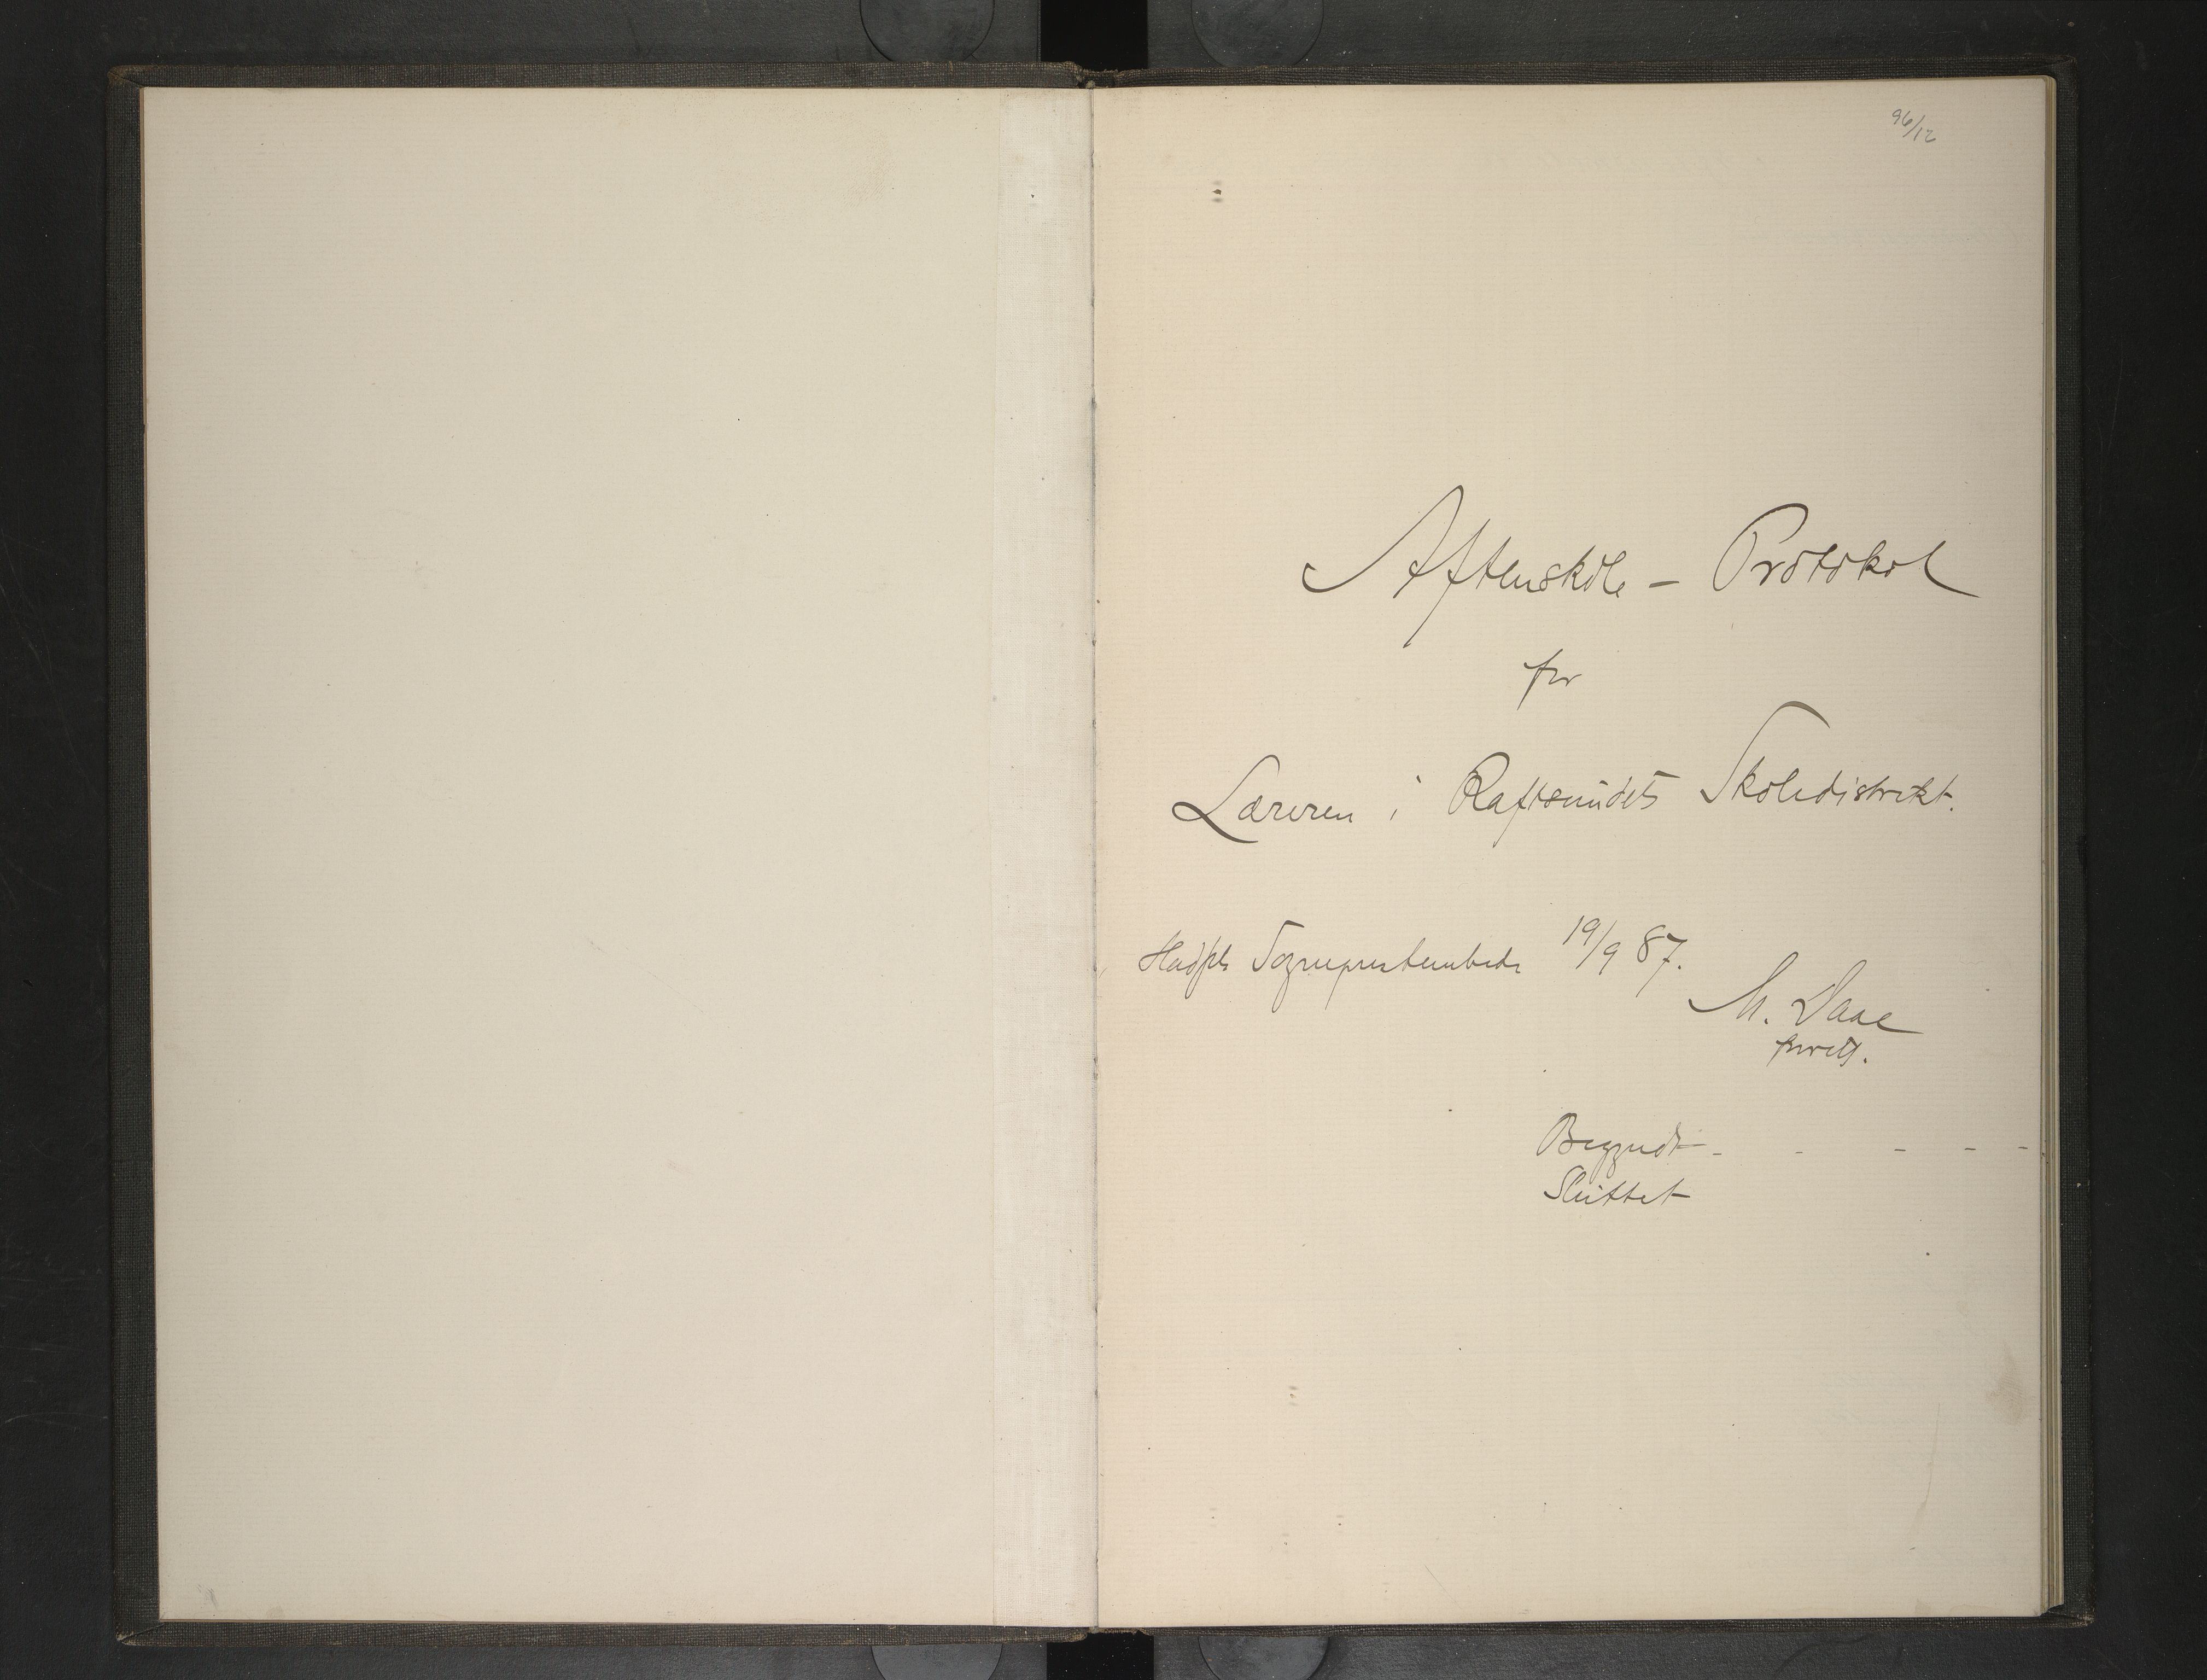 96/12
Aftenskole - Protokol
for
Læreren i Raftsundets Skoledistrikt.
Hadsels Sogneprestembede 19/9 87.
M. Daae
Begyndt - - - - -
Sluttet